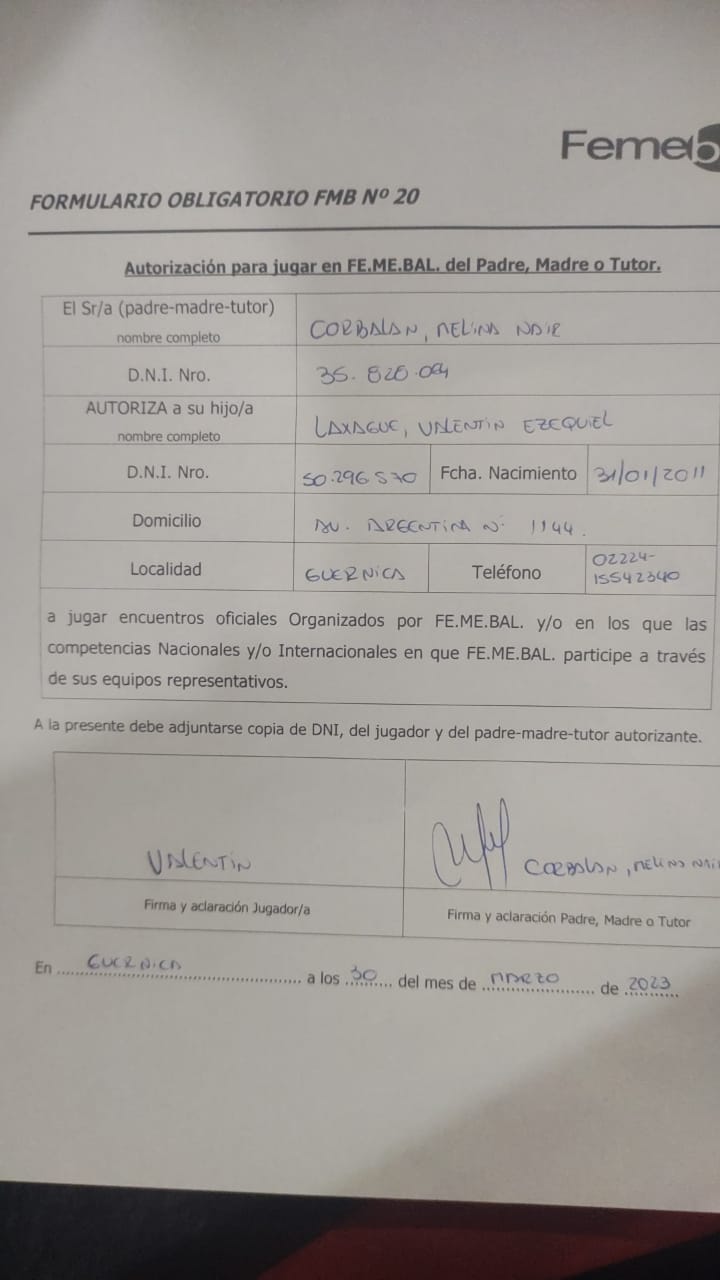 Femeb
FORMULARIO OBLIGATORIO FMB Nº 20
Autorización para jugar en FE.ME.BAL. del Padre, Madre o Tutor.
El Sr/a (padre-madre-tutor)
nombre completo
CORBALAN, MELINA NAIR
D.N.I. Nro.
35.828.084
AUTORIZA a su hijo/a
nombre completo
LAXAGUE, VALENTIN EZEQUIEL
D.N.I. Nro.
50.296.570
Fcha. Nacimiento
31/01/2011
Domicilio
AV. ARGENTINA N· 1144.
Localidad
GUERNICA
Teléfono
02224-
15542340
a jugar encuentros oficiales Organizados por FE.ME.BAL. y/o en los que las
competencias Nacionales y/o Internacionales en que FE.ME.BAL. participe a través
de sus equipos representativos.
A la presente debe adjuntarse copia de DNI, del jugador y del padre-madre-tutor autorizante.
VALENTIN
CORBALAN, MELINA NAI
Firma y aclaración Jugador/a
Firma y aclaración Padre, Madre o Tutor
En GUERNICA a los 30 del mes de MARZO de 2023